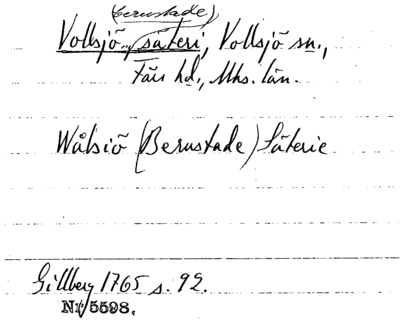 (Berustade)
Vollsjö, säteri, Vollsjö sn.,
Färs hd., Mhs. län.
Wålsiö (Berustade) Säterie
Gillberg 1765 s. 92.
Nr 5598.